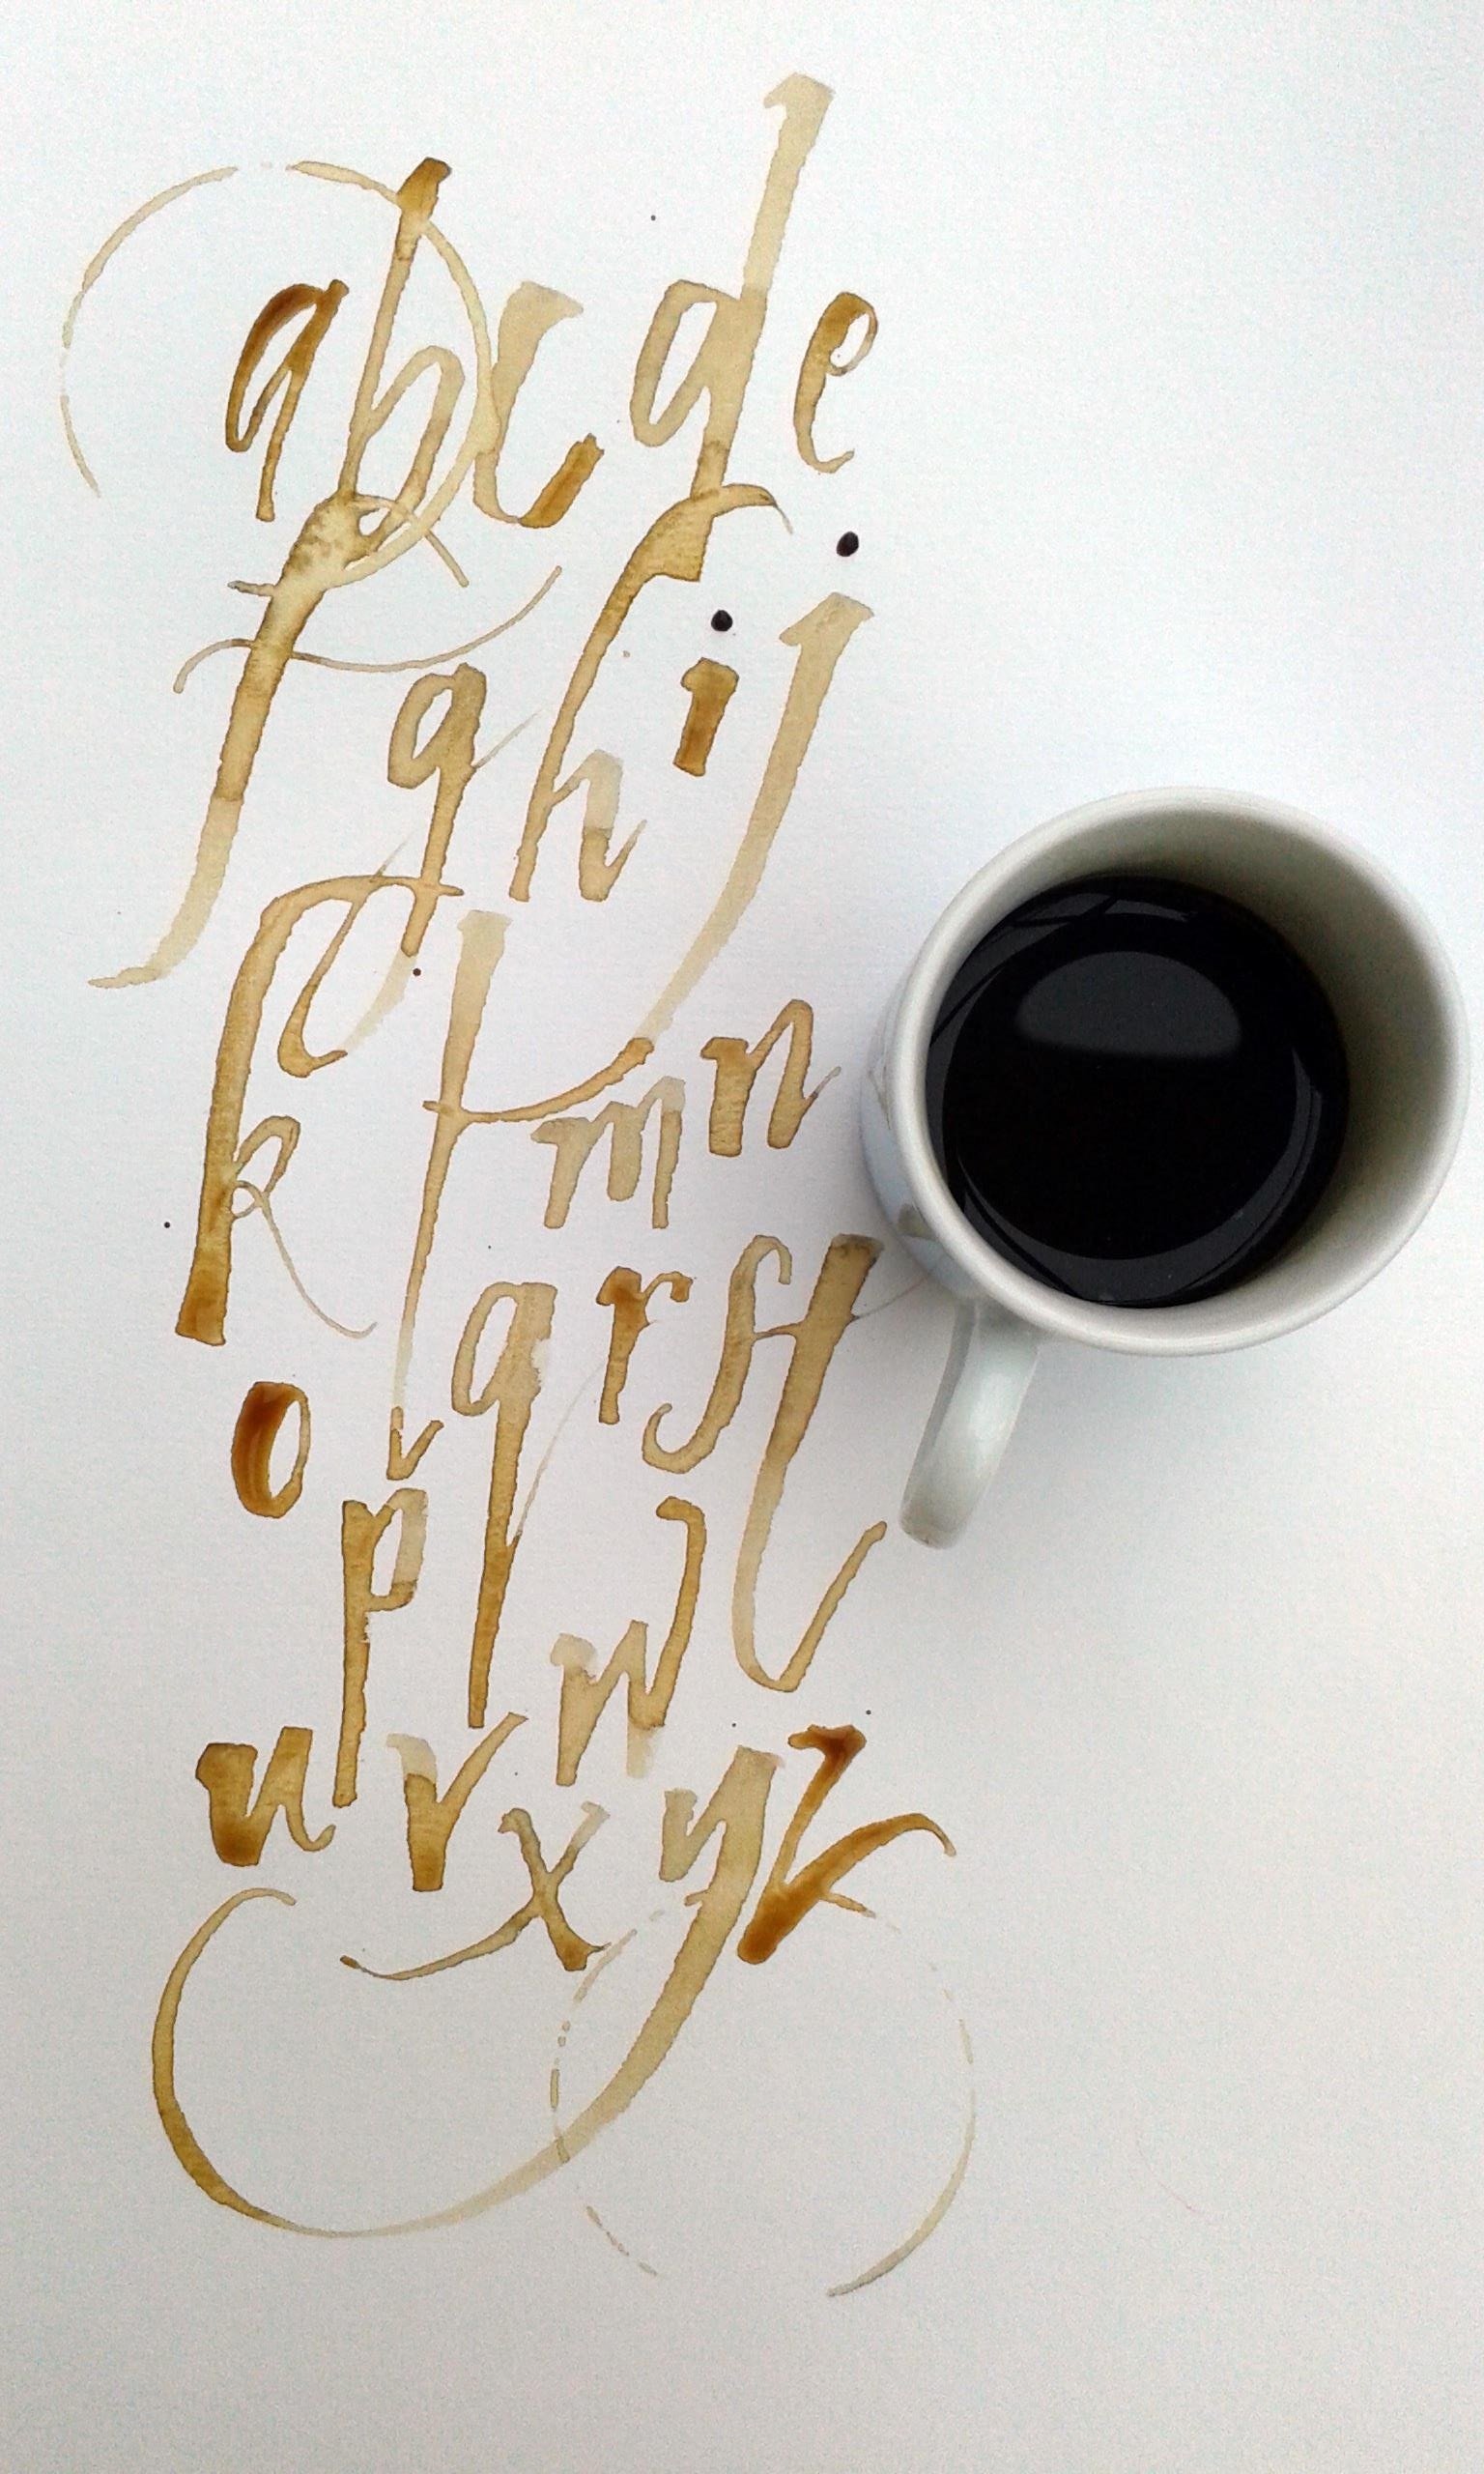 abcde
fghij
klmn
opqrst
uvwxyz